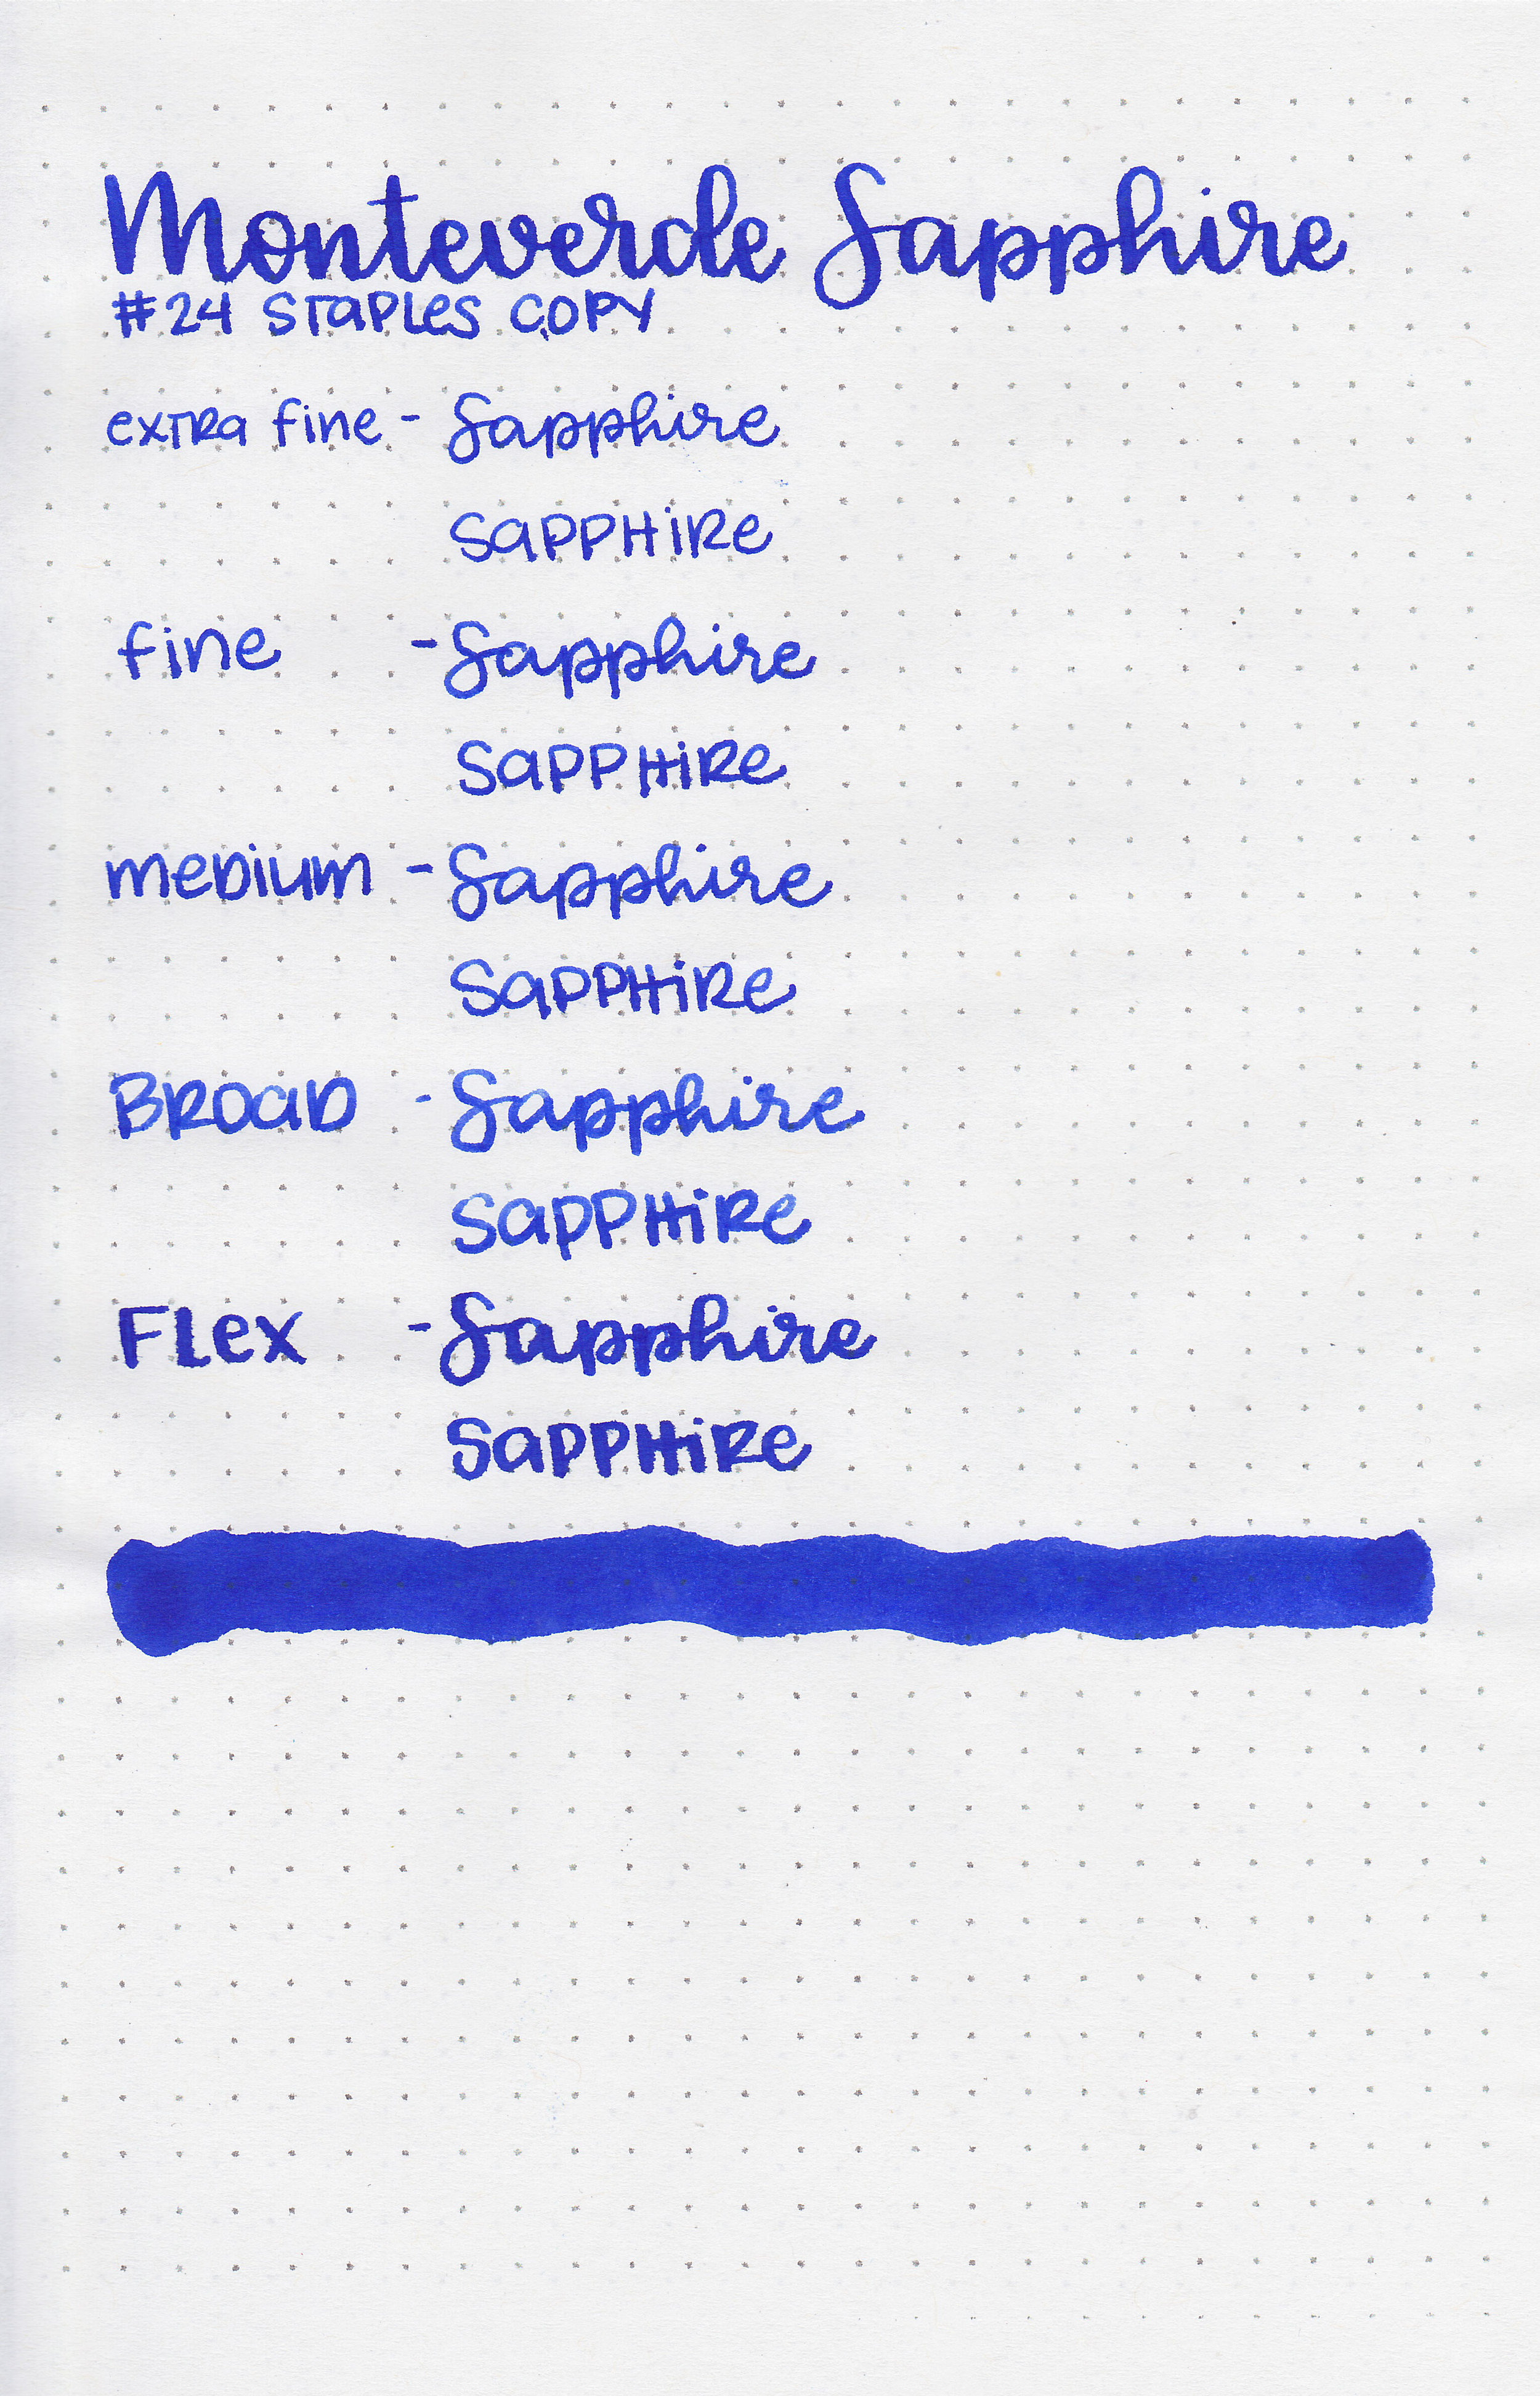 Monteverde Sapphire
#24 STaPLes COPY
exTRa fine - Sapphire
SaPPHiRe
fine - Sapphire
SaPPHiRe
meDium - Sapphire
SaPPHiRe
BRoaD - Sapphire
SaPPHiRe
FLex - Sapphire
SaPPHiRe